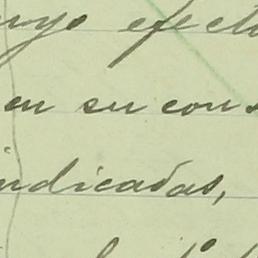 cuyo efecto
en su con
indicadas,